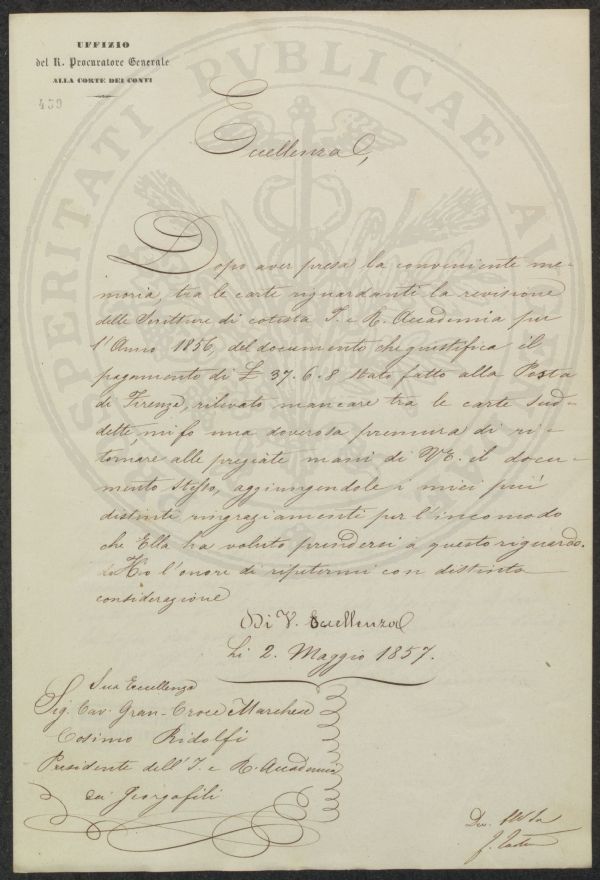 UFFIZIO
del R. Procuratore Generale
ALLA CORTE DEI CONTI
439
Eccellenza,
Dopo aver presa la conveniente me-
moria, tra le carte riguardanti la revisione
delle Scritture di cotesta I. e R. Accademia per
l'Anno 1856, del documento che giustifica il
pagamento di £ 37. 6. 8 stato fatto alla Posta
di Firenze, rilevato mancare tra le carte sud-
dette, mi fo una doverosa premura di ri-
tornare alle pregiate mani di V.E. il docu-
mento stesso, aggiungendole i miei più
distinti ringraziamenti per l'incomodo
che Ella ha voluto prendersi a questo riguardo.
Ho l'onore di ripetermi con distinta
considerazione
Di V. Eccellenza
Li 2. Maggio 1857.
Sua Eccellenza
Sig. Cav. Gran-Croce Marchese
Cosimo Ridolfi
Presidente dell'I. e R. Accademia
dei Georgofili
Dev.
PROSPERITATI PUBLICAE